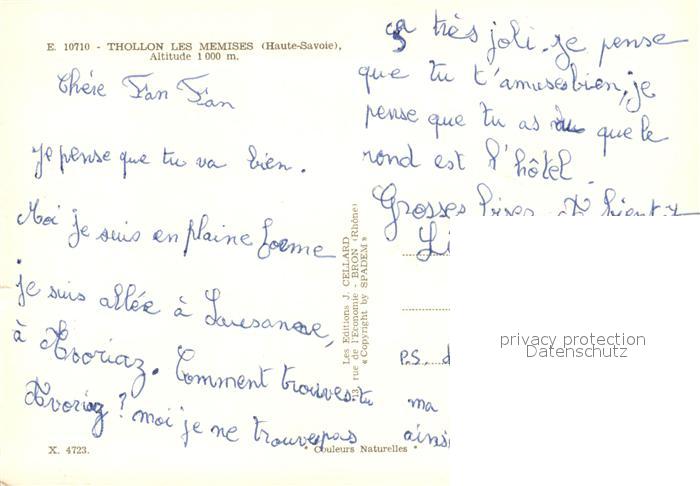 E. 10710 - THOLLON LES MEMISES (Haute-Savoie),
Altitude 1 000 m.
Chére Fan Fan
Je pense que tu va bien.
Moi je suis en plaine forme
je suis allée à Lausanne,
à Avoriaz. Comment trouves-tu
Avoriaz ? moi je ne trouve pas
X. 4723.
"Couleurs Naturelles"
Les Editions J. CELLARD
13, rue de l'Economie - BRON (Rhône)
« Copyright by SPADEM »
ça très joli. Je pense
que tu t'amuses bien, je
pense que tu as vu que le
rond est l'hôtel.
Grosses bises. A bientôt
P.S.
ma
ainsi
privacy protection
Datenschutz